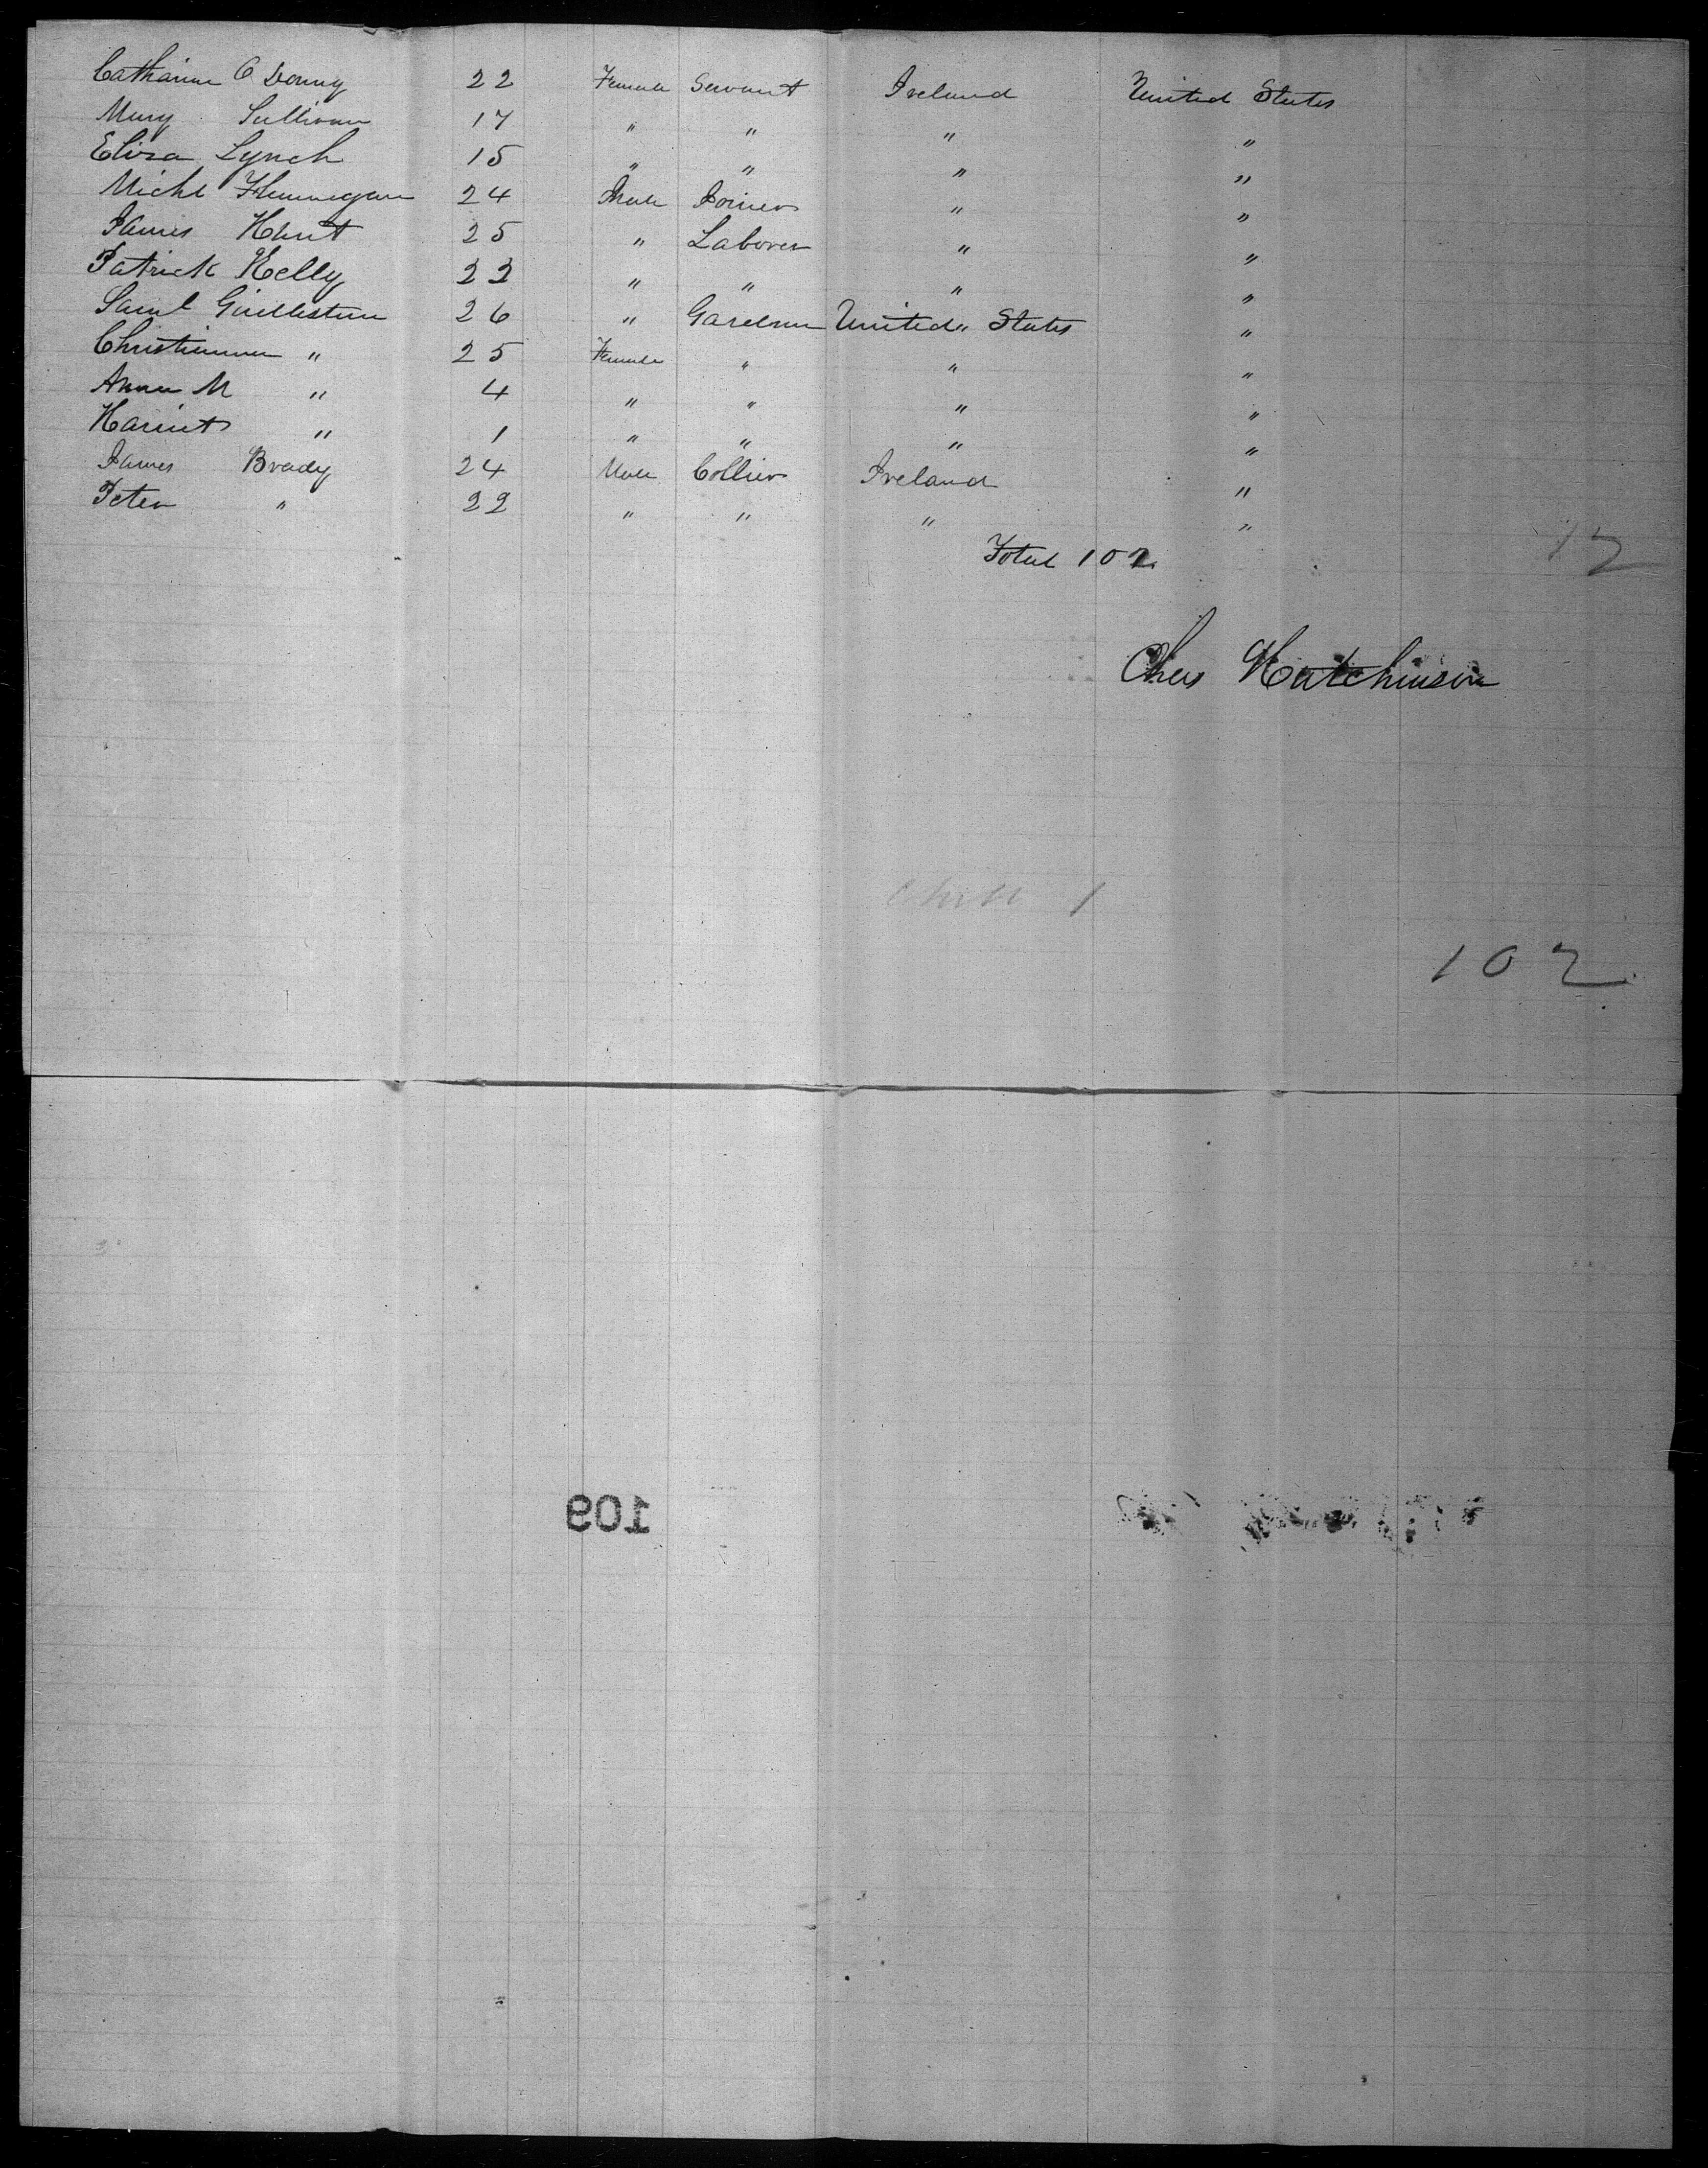 Catharine O Donny 22 Female Servant Ireland United States
Mary Sullivan 17 " " " "
Eliza Lynch 15 " " " "
Michl Flannegan 24 Male Joiner " "
James Hunt 25 " Laborer " "
Patrick Kelly 22 " " " "
Saml 26 " United " States "
Christianna " 25 Female " " "
Anna M " 4 " " " "
Harriet " 1 " " " "
James Brady 24 Male Collier Ireland "
Peter " 22 " " " "
Total 102
12
Chas Hutchinson
1
102
109